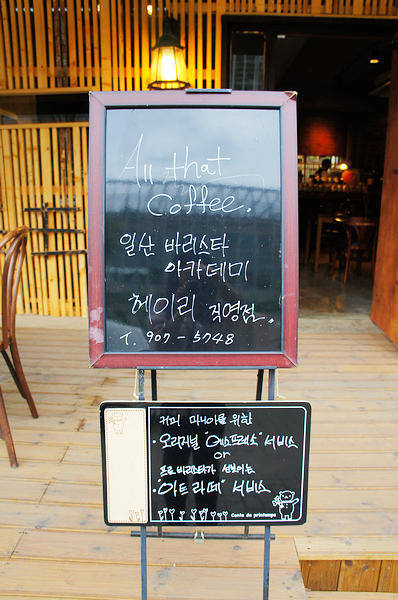 All that
Coffee.
일산 바리스타
아카데미
헤이리 직영점.
T. 907-5748
커피 마니아를 위한
·오리지널 "에스프레소" 서비스
or
프로바리스타가 선보이는
·"아트라떼" 서비스
Conte de printemps